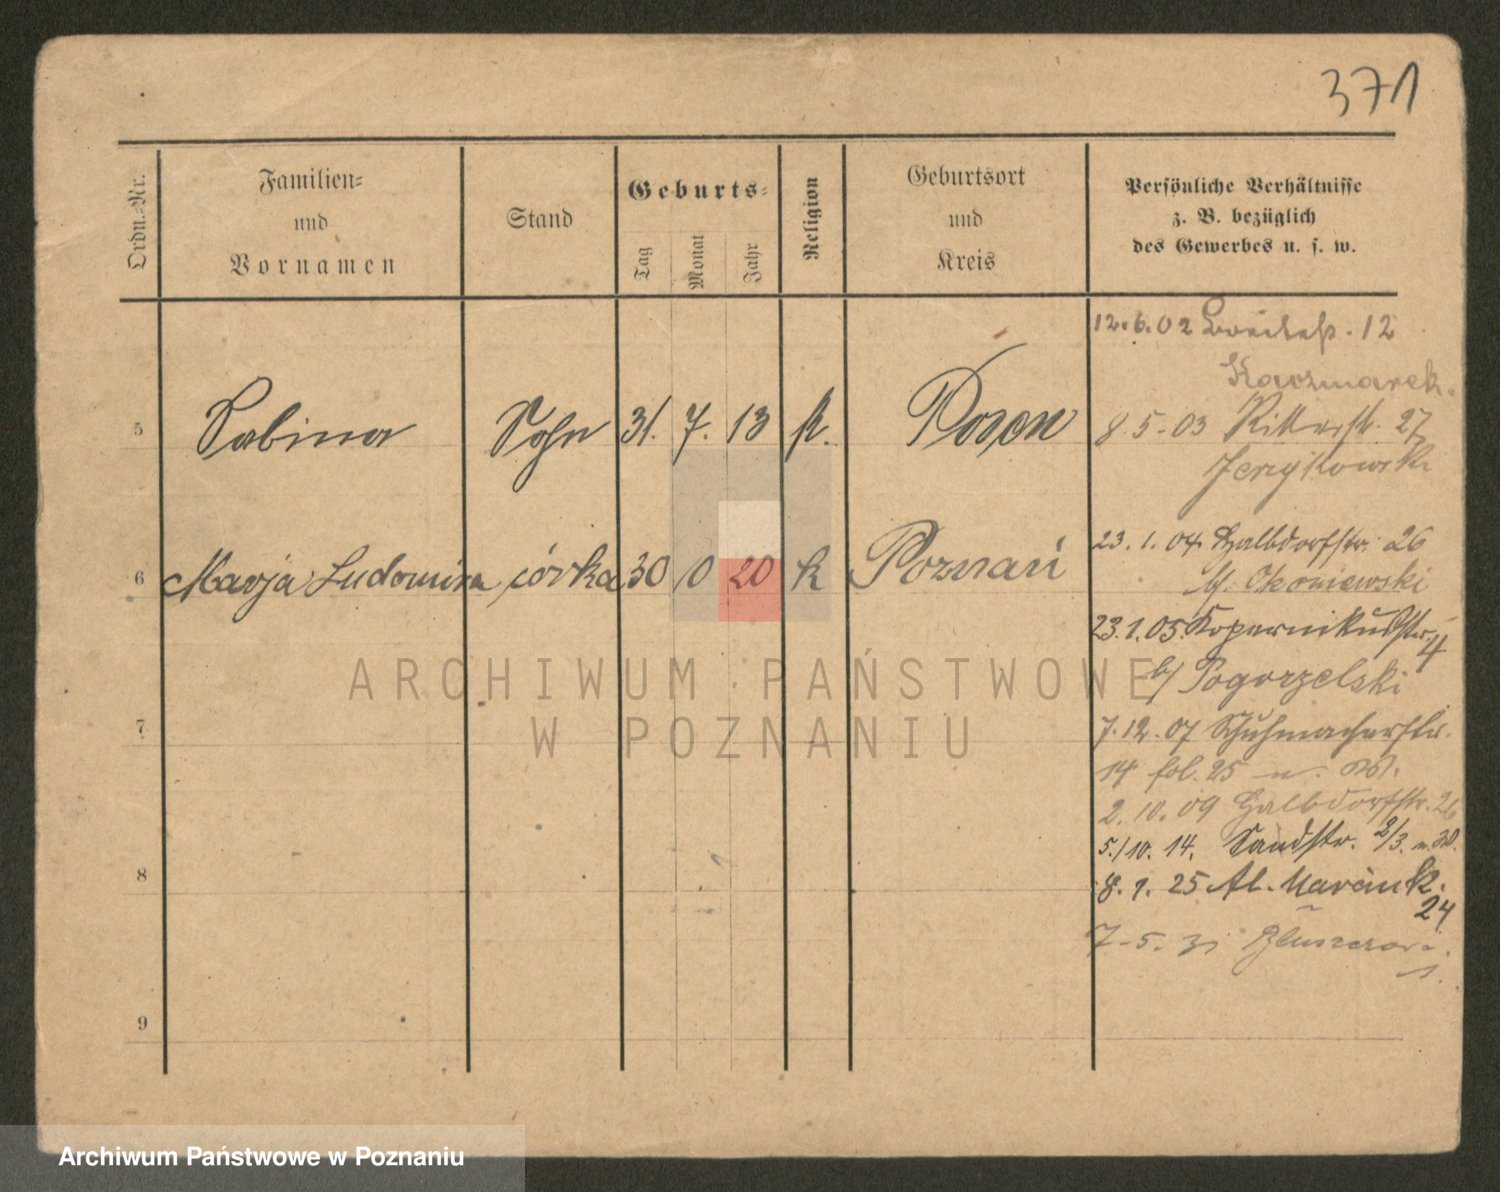 371
Ordn.-Nr.
Familien-
und
Vornamen
Stand
Geburts-
Tag
Monat
Jahr
Religion
Geburtsort
und
Kreis
Persönliche Verhältnisse
z. B. bezüglich
des Gewerbes u. s. w.
12.6.02 Breitestr. 12
Kaczmarek.
5 Sabina Sohn 31. 7. 13 k. Posen
8.5.03 Ritterstr. 27
Jerzykowski
23.1.04 Halbdorfstr. 26
6 Marja Ludomira córka 30 20 k Poznań
M. Okoniewski
23.1.05. Kopernikusstr. 4
b/ Pogorzelski
7
7.12.07 Schuhmacherstr.
14 fol. 25
2.10.09 Halbdorfstr. 26
5./10. 14. Sandstr. 2/3.
8
8.9.25 Al. Marcink.
24
7-5.
9
ARCHIWUM PAŃSTWOWE
W POZNANIU
Archiwum Państwowe w Poznaniu